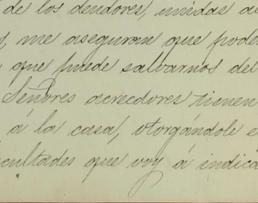 de los deudores, unidas a
, me aseguran que pode
que puede salvarnos del
Señores acreedores tienen
á la casa, otorgándole e
cultades que voy á indica